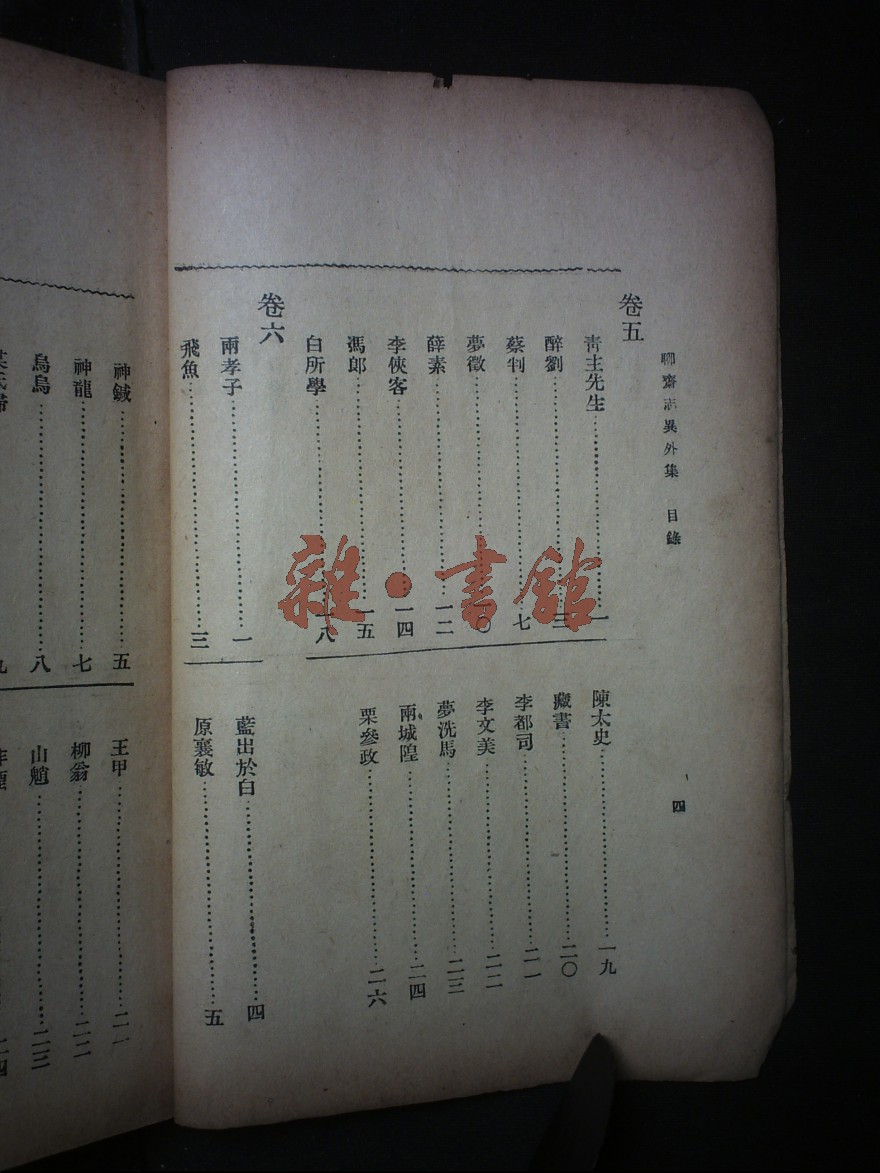 聊齋志異外集　目錄
四
卷五
靑主先生……一
醉劉……三
蔡判……七
夢徵……一〇
薛素……一二
李俠客……一四
馮郎……一五
白所學……一八
陳太史……一九
藏書……二〇
李都司……二一
李文美……二二
夢洗馬……二三
兩城隍……二四
栗參政……二六
卷六
兩孝子……一
飛魚……三
藍出於白……四
原襄敏……五
神鍼……五
神龍……七
烏烏……八
王甲……二一
柳翁……二二
山魈……二三
雜·書館